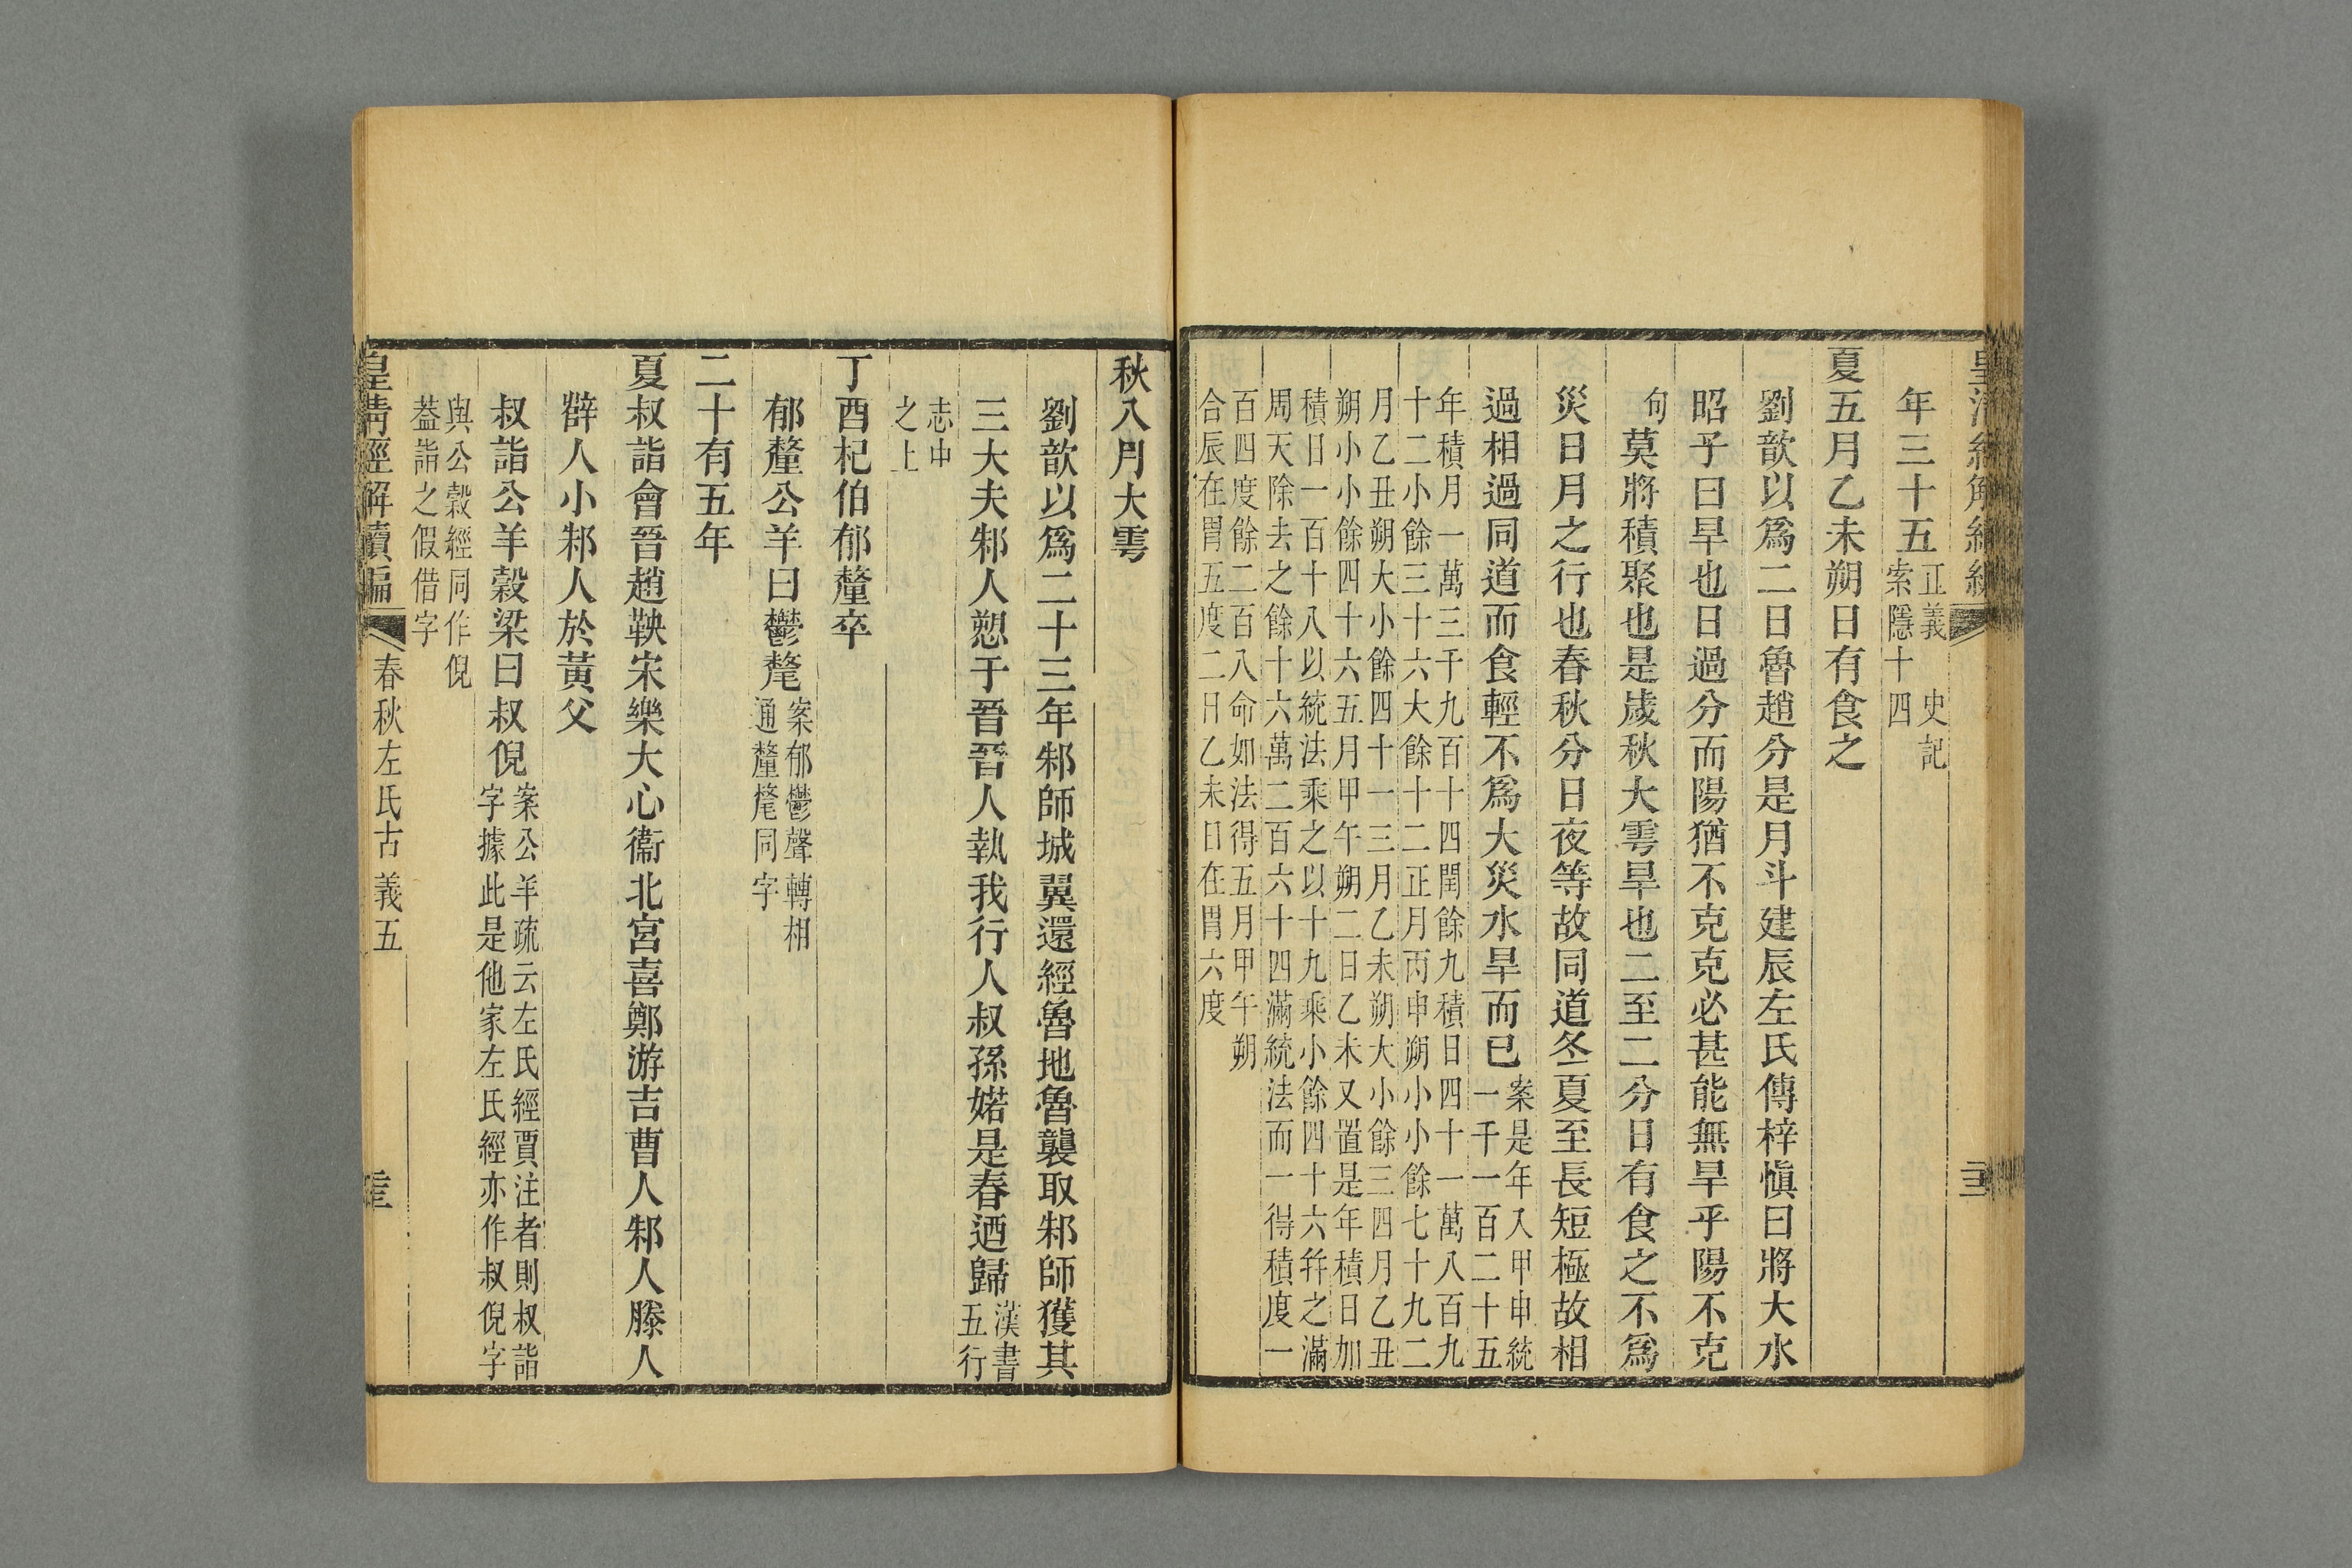 年三十五正義史記
索隱十四
夏五月乙未朔日有食之
劉歆以爲二日魯趙分是月斗建辰左氏傳梓愼曰將大水
昭子曰旱也日過分而陽猶不克克必甚能無旱乎陽不克
句莫將積聚也是歲秋大雩旱也二至二分日有食之不爲
災日月之行也春秋分日夜等故同道冬夏至長短極故相
過相過同道而食輕不爲大災水旱而已案是年入甲申統
一千一百二十五
年積月一萬三千九百十四閏餘九積日四十一萬八百九
十二小餘三十六大餘十二正月丙申朔小小餘七十九二
月乙丑朔大小餘四十一三月乙未朔大小餘三四月乙丑
朔小小餘四十六五月甲午朔二日乙未又置是年積日加
積日一百十八以統法乘之以十九乘小餘四十六幷之滿
周天除去之餘十六萬二百六十四滿統法而一得積度一
百四度餘二百八命如法得五月甲午朔
合辰在胃五度二日乙未日在胃六度
秋八月大雩
劉歆以爲二十三年邾師城翼還經魯地魯襲取邾師獲其
三大夫邾人愬于晉晉人執我行人叔孫婼是春迺歸漢書
五行
志中
之上
丁酉杞伯郁釐卒
郁釐公羊曰鬱氂案郁鬱聲轉相
通釐氂同字
二十有五年
夏叔詣會晉趙鞅宋樂大心衞北宮喜鄭游吉曹人邾人滕人
薛人小邾人於黃父
叔詣公羊穀梁曰叔倪案公羊疏云左氏經賈注者則叔詣
字據此是他家左氏經亦作叔倪字
與公穀經同作倪
葢詣之假借字
皇淸經解續編
春秋左氏古義五